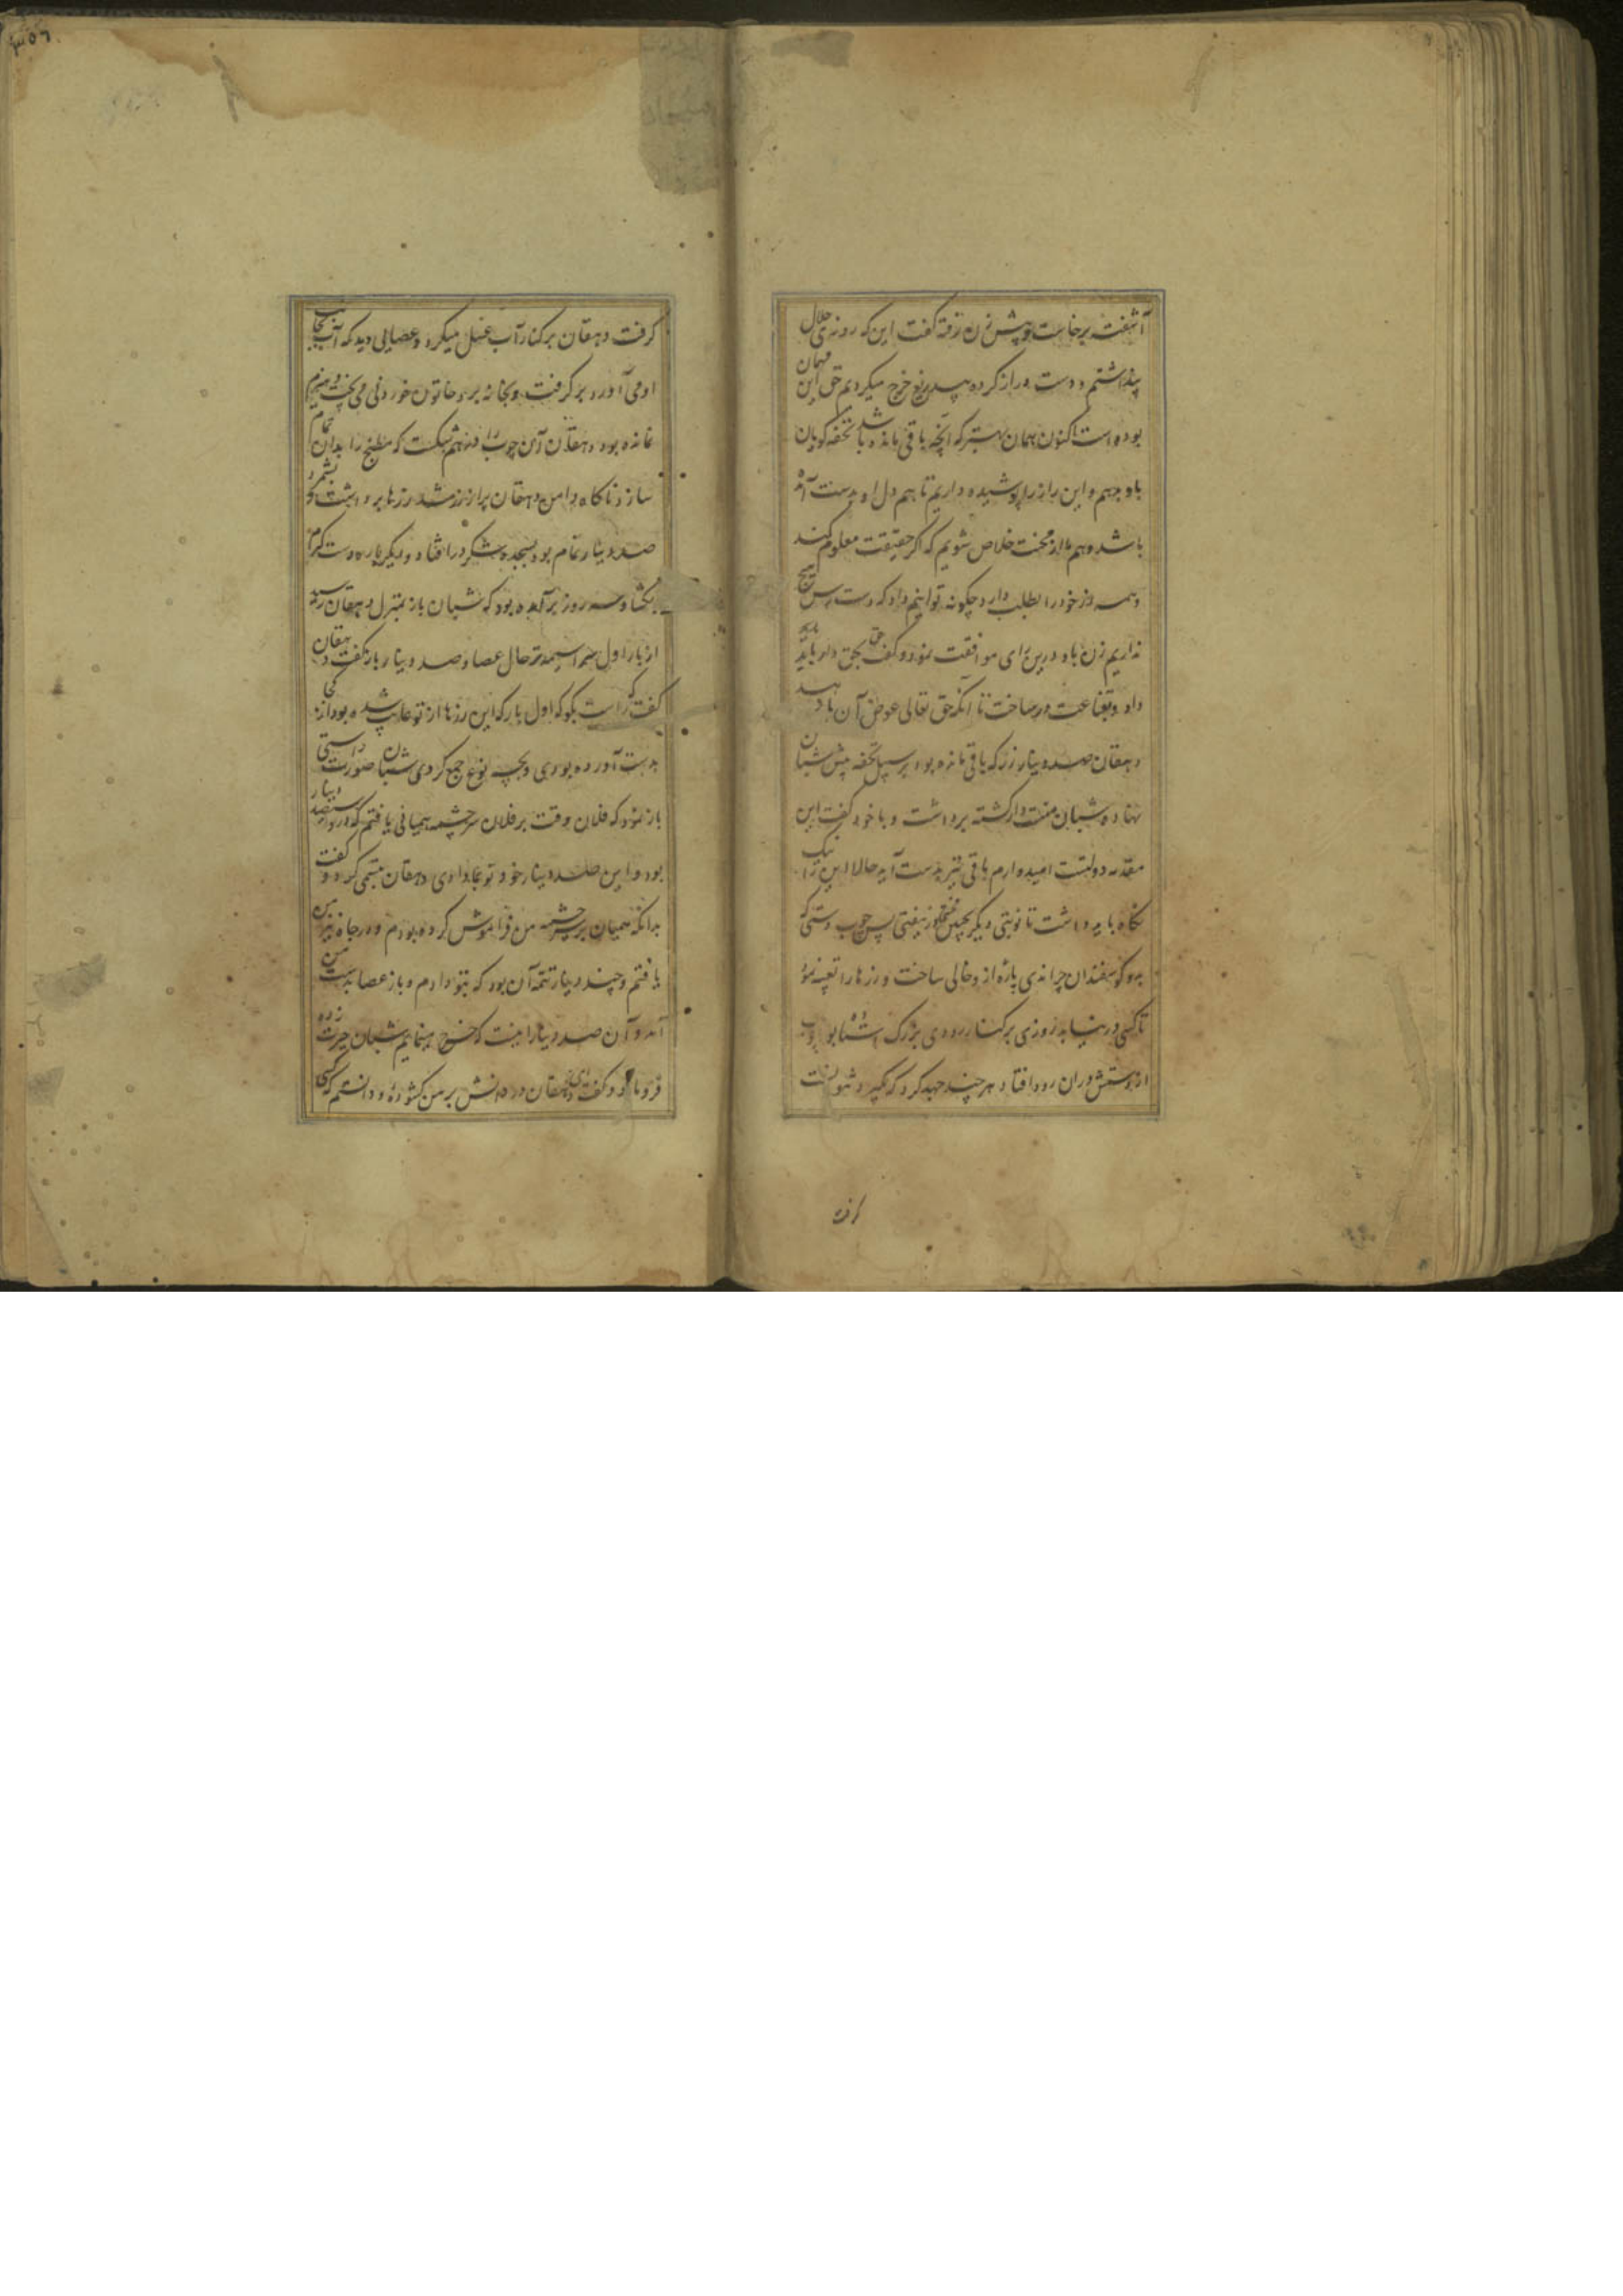 آشفته برخاست و پیش زن رفته گفت این که روزی حلال
پنداشتم و دست دراز کرده بیدریغ خرج میکردیم حق این مهمان
بوده است اکنون همان بهتر که آنچه باقی مانده باشد تحفه گویان
باو دهیم و این راز را پوشیده داریم تا هم دل او بدست آمده
باشد و هم ما از محنت خلاص شویم که اگر حقیقت معلوم کند
و همه زر خود را بطلب دارد چگونه توانیم داد که دست رس هیچ
نداریم زن با او درین رای موافقت نمود و گفت حق بحق دار باید
داد و بقناعت در ساخت تا آنکه حق تعالی عوض آن باز دهد
دهقان صد دینار زر که باقی مانده بود بر سبیل تحفه پیش شبان
نهاد و شبان منت دار گشته برداشت و با خود گفت این
مقدمه دولتست امیدوارم باقی نیز بدست آید حالا این را نیک
نگاه باید داشت تا نوبتی دیگر بچنین نیفتی پس چوب دستی که
بدو گوسفندان چراندی پاره از و خالی ساخت و زرها را تعبیه نمود
تا کسی در نیابد روزی بر کنار رودی بزرگ استاده بود چوب
از دستش در آن رود افتاد هر چند جهد کرد که بگیرد نتوانست
گرفت دهقان بر کنار آب غسل میکرد و عصایی دید که آب بجانب
او می آورد برگرفت و بخانه برد خاتون خوردنی می پخت و هیزم
نمانده بود دهقان آن چوب را در هم شکست که مطبخ را بدان تمام
سازد ناگاه دامن دهقان پر از زر شد زرها برداشت بشمرد
صد دینار تمام بود بسجده شکر در افتاد و دیگر باره دست کرم
بگشاد و سه روز برآمده بود که شبان باز بمنزل دهقان رسید
از بار اول سراسیمه تر حال عصا و صد دینار باز گفت دهقان
گفت راست بگو که اول بار که این زرها از تو غایب شده بود از کجا
بدست آورده بودی و بچه نوع جمع کردی شبان صورت راستی
باز نمود که فلان وقت بر فلان سر چشمه همیانی یافتم که درو سیصد دینار
بود و این صد دینار خود تو بما دادی دهقان تبسمی کرد و گفت
بدانکه همیان بر سر چشمه من فراموش کرده بودم و در چاه نیز من
یافتم و چند دینار تتمه آن بود که بتو دادم و باز عصا بدست من
آمد و آن صد دینار اینست که خرج مینمایم شبان حیرت زده
فرو ماند و گفت ای دهقان در دانش بر من گشوده و دانستم که کسی